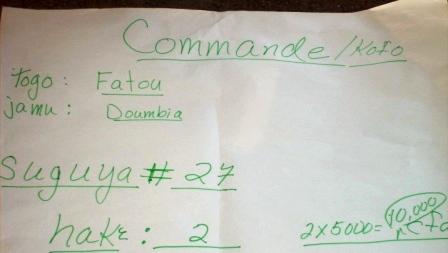 Commande/Koto
Togo: Fatou
jamu: Doumbia
Suguya # 27
hakɛ: 2
2x5000= 10,000